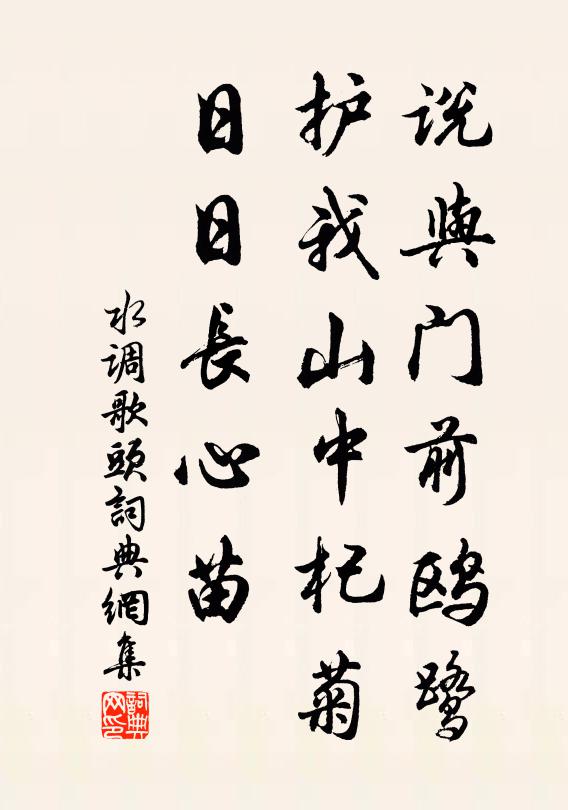 说與门前鸥鹭
护我山中杞菊
日日長心苗
水调歌頭詞典網集
詞典网印